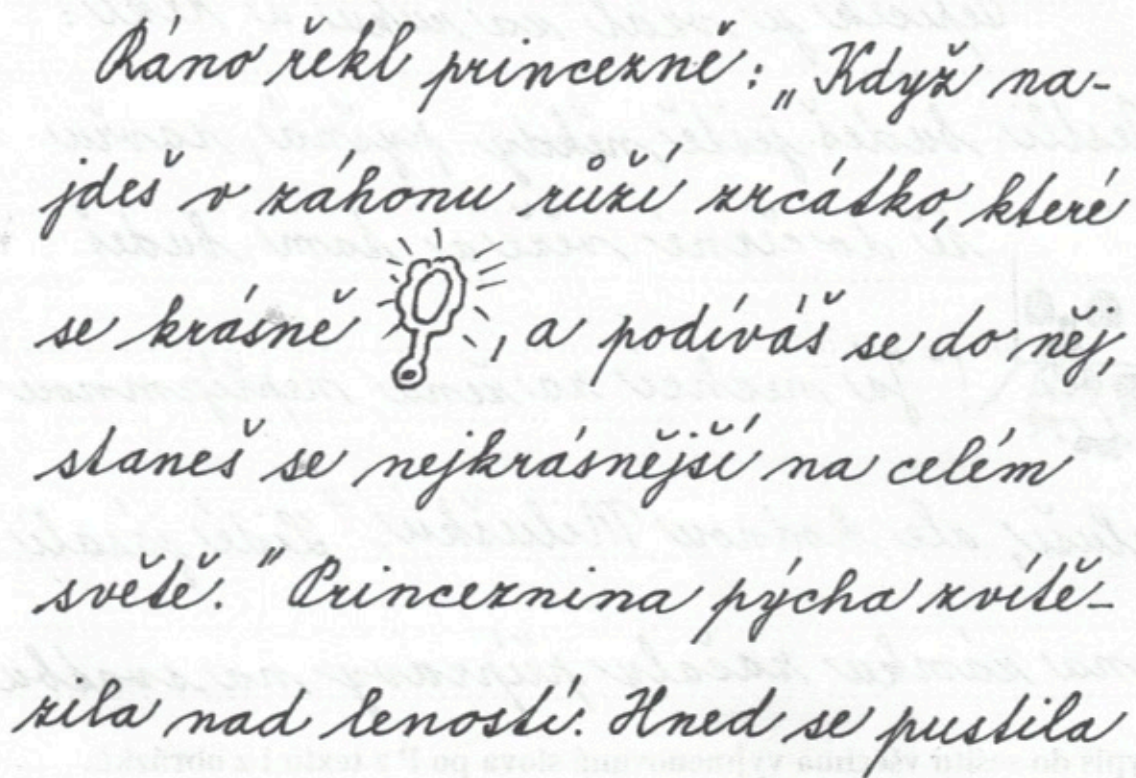 Ráno řekl princezně: „Když na-
jdeš v záhonu růží zrcátko, které
se krásně , a podíváš se do něj,
staneš se nejkrásnější na celém
světě." Princeznina pýcha zvítě-
zila nad leností. Hned se pustila